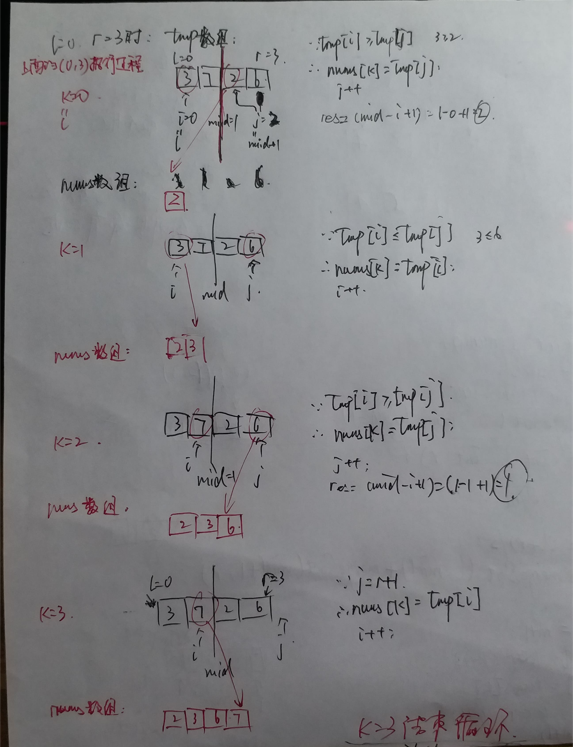 l=0 r=3时: tmp数组:
l=0 r=3.
3 7 2 6
上面的(0,3)执行过程
K=0
i
i=0 mid=1 j=2
i mid+1
∵tmp[i]>tmp[j] 3>2
∴nums[K]=tmp[j];
j++
res=(mid-i+1)=1-0+1=2
nums数组:
2
K=1
3 7 2 6
i mid j
∵tmp[i]≤tmp[j] 3≤6
∴nums[K]=tmp[i];
i++.
nums数组:
2 3
K=2.
3 7 2 6
i mid=1 j
∵tmp[i]>tmp[j]
∴nums[K]=tmp[j];
j++;
res=(mid-i+1)=(1-1+1)=
nums数组.
2 3 6
K=3.
l=0 r=3
3 7 2 6
i mid j
∵j=r+1.
∴nums[K]=tmp[i]
i++;
nums数组:
2 3 6 7
K=3结束循环